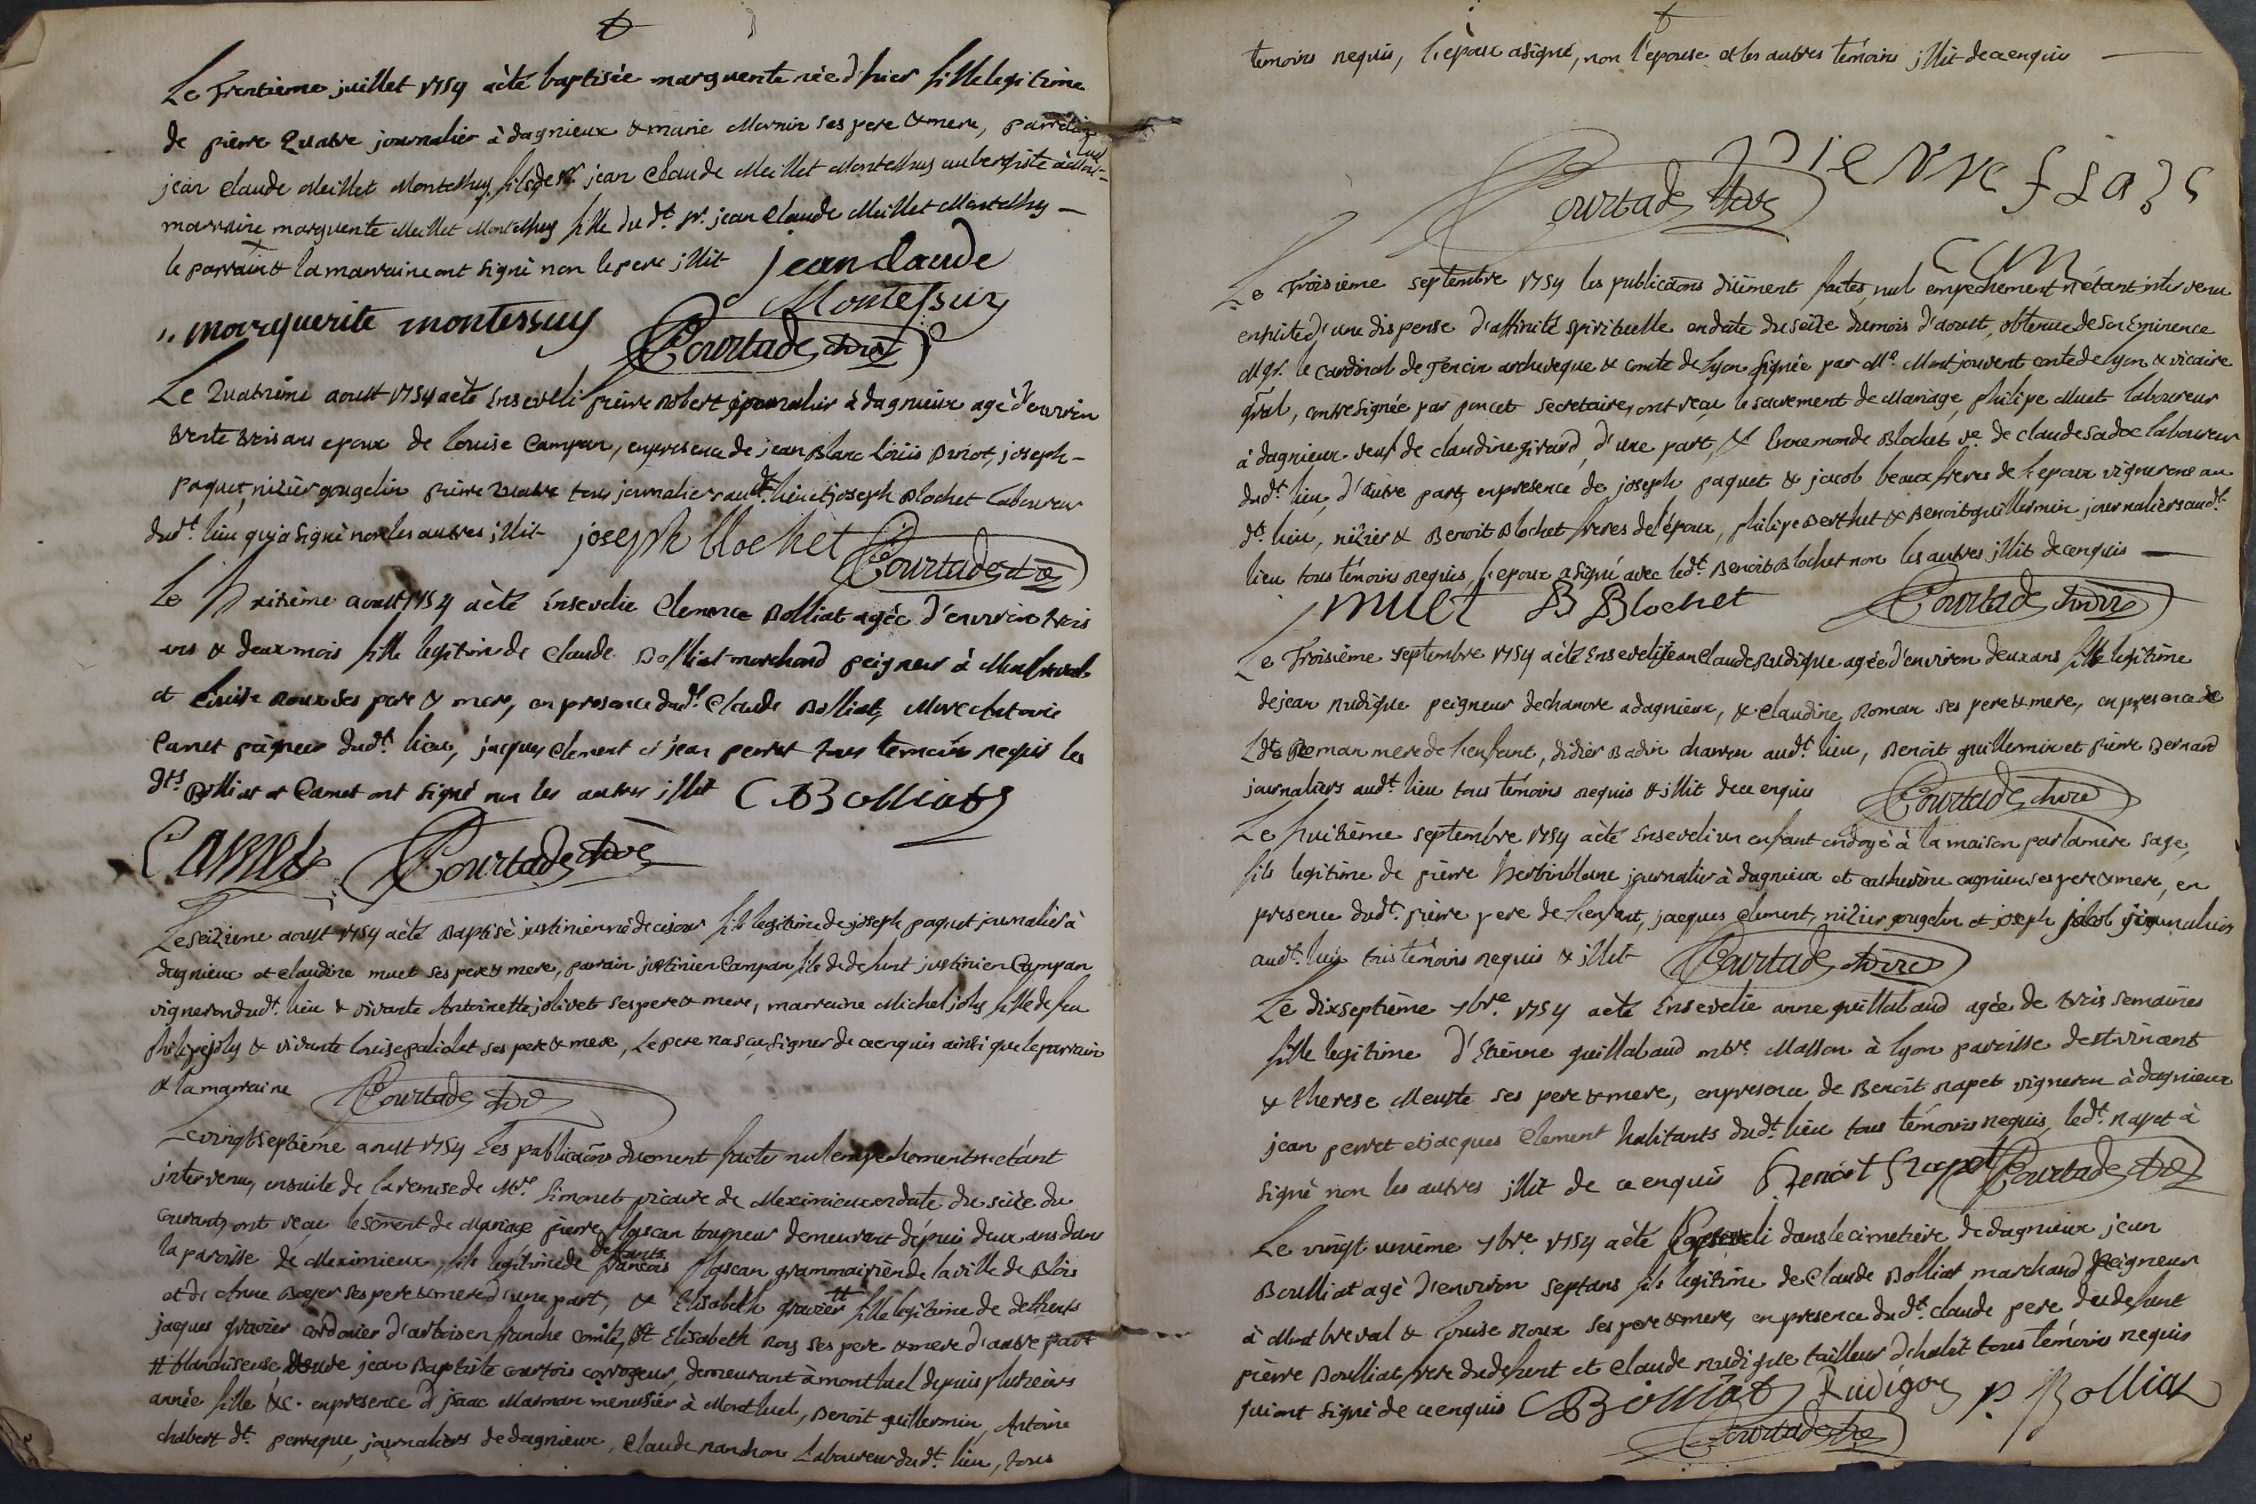 Le Trentième juillet 1754 a été baptisée marguerite née d'hier fille legitime
de pierre Quatre journalier à dagnieux & marie Mornin ses pere & mere, parrain
jean Claude Meillet Montessuy fils de Sr jean Claude Meillet Montessuy aubergiste à
marraine marguerite Meillet Montessuy fille du dt. Sr. jean Claude Meillet Montessuy —
le parrain & la marraine ont signé non le pere illit jean claude
Montessuy
marguerite montessuy Courtade curé
Le Quatrieme aoust 1754 a été Enseveli pierre Robert journalier à dagnieux agé d'environ
trente trois ans epoux de Louise Campan, en presence de jean Blanc Loüis Buriot, joseph
paquet, nizier gougelin pierre Quatre tous journaliers audt. lieu et joseph Blochet Laboureur
dudt. lieu qui a signé non les autres illit joseph blochet Courtade curé
Le huitième aoust 1754 a été Ensevelie Clemence Bolliat agée d'environ trois
ans & deux mois fille legitime de Claude Bolliat marchand peigneur à Montluel
et Louise Roux ses pere & mere, en presence dudt. Claude Bolliat, Marc Antoine
Carret peigneur dudt. lieu, jacques Clement et jean perret tous temoins requis les
dts. Bolliat et Carret ont signé non les autres illit C Bolliat
Carret Courtade curé
Le seizieme aoust 1754 a été Baptisé justinien né de ce jour fils legitime de joseph paquet journalier à
dagnieux et Claudine muet ses pere & mere, parrain justinien Campan fils de defunt justinien Campan
vigneron dudt. lieu & vivante Antoinette jolivet ses pere & mere, marraine Michel joly fille de feu
philipe joly & vivante Louise paliolet ses pere & mere, Le pere n'a sçu signer de ce enquis ainsi que le parrain
& la marraine Courtade curé
Le vingtseptiéme aoust 1754 Les publicaõns duement faites nul empechement n'etant
intervenu, ensuite de la remise de Mre. Simonet vicaire de Meximieux en date du seize du
courant, ont reçu le sc̃ment de Mariage pierre flascan tourneur demeurant dépuis deux ans dans
la paroisse de Meximieux, fils legitime de defunts françois flascan grammairien de la ville de Blois
et de Anne Boyer ses pere & mere d'une part, & Elisabeth gravier # fille legitime de defunts
jaques gravier cordonier d'artois en franche comté, et Elisabeth Roy ses pere & mere d'autre part
# blanchiseuse, veuve jean Baptiste courtois corroyeur, demeurant à montluel depuis plusieurs
année fille &c. en presence d'isaac Marman menuisier à Montluel, Benoit guillermin, Antoine
chabert dt. perruque, journaliers de dagnieux, Claude nandron Laboureur dudt. lieu, tous
temoins requis, l'epoux a signé, non l'epouse et les autres témoins illit de ce enquis —
pierre flas
can
Courtade Curé
Le Troisieme septembre 1754 les publicaõns düement faites, nul empechement n'étant intervenu
ensuite d'une dispense d'affinité spirituelle en date du seize du mois d'aoust, obtenue de son Eminence
Mgr. le Cardinal de Tencin archeveque & comte de Lyon signée par Mr. Montjouvent comte de lyon & vicaire
gñral, contresignée par poncet secretaire, ont reçu le sacrement de Mariage philipe Muet laboureur
à dagnieux veuf de claudine girard, d'une part, & Ennemonde Blochet ve. de claude sadoc laboureur
dudt. lieu, d'autre part, en presence de joseph paquet & jacob beaux freres de l'epoux vignerons au
dt. lieu, nizier & Benoit Blochet freres de l'époux, philipe Berthet & Benoit guillermin journaliers audt.
lieu tous témoins requis, l'epoux a signé avec ledt. Benoit Blochet non les autres illit. de ce enquis —
muet B Blochet Courtade curé
Le Troisième septembre 1754 a été Enseveli jean Claude Rudigue agée d'environ deux ans fils legitime
de jean rudigue peigneur de chanvre a dagnieux, & Claudine Roman ses pere & mere, en presence de
Ldte Roman mere de l'enfant, didier Badin charron audt. lieu, Benoit guillermin et pierre Bernard
journaliers audt. lieu tous témoins requis & illit de ce enquis Courtade curé
Le huitième septembre 1754 a été Enseveli un enfant ondoyé à la maison par la mere sage,
fils legitime de pierre herbinblanc journalier à dagnieux et catherine cagnieu ses pere & mere, en
presence dudt. pierre pere de l'enfant, jacques Clement, nizier gougelin et joseph jacob journaliers
audt. lieu tous témoins requis & illit Courtade curé
Le dixseptième 7bre. 1754 a été Ensevelie anne guillabaud agée de trois semaines
fille legitime d'Etienne guillabaud mtre. Masson à Lyon paroisse de st vincent
& therese Meuste ses pere & mere, en presence de Benoit rapet vigneron à dagnieux
jean perret et jacques Clement habitants dudt. lieu tous témoins requis, ledt. rapet à
signé non les autres illit de ce enquis Benoit Rapet Courtade curé
Le vingt unième 7bre. 1754 a été Enseveli dans le cimetiere de dagnieux jean
Boulliat agé d'environ sept ans fils legitime de Claude Bolliat marchand peigneur
à Montbreval & Louise Roux ses pere & mere, en presence dudt. claude pere du defunt
pierre Boulliat frere du defunt et Claude rudigue tailleur d'habit tous temoins requis
qui ont signé de ce enquis C Bolliat Rudigoz p. Bolliat
Courtade curé